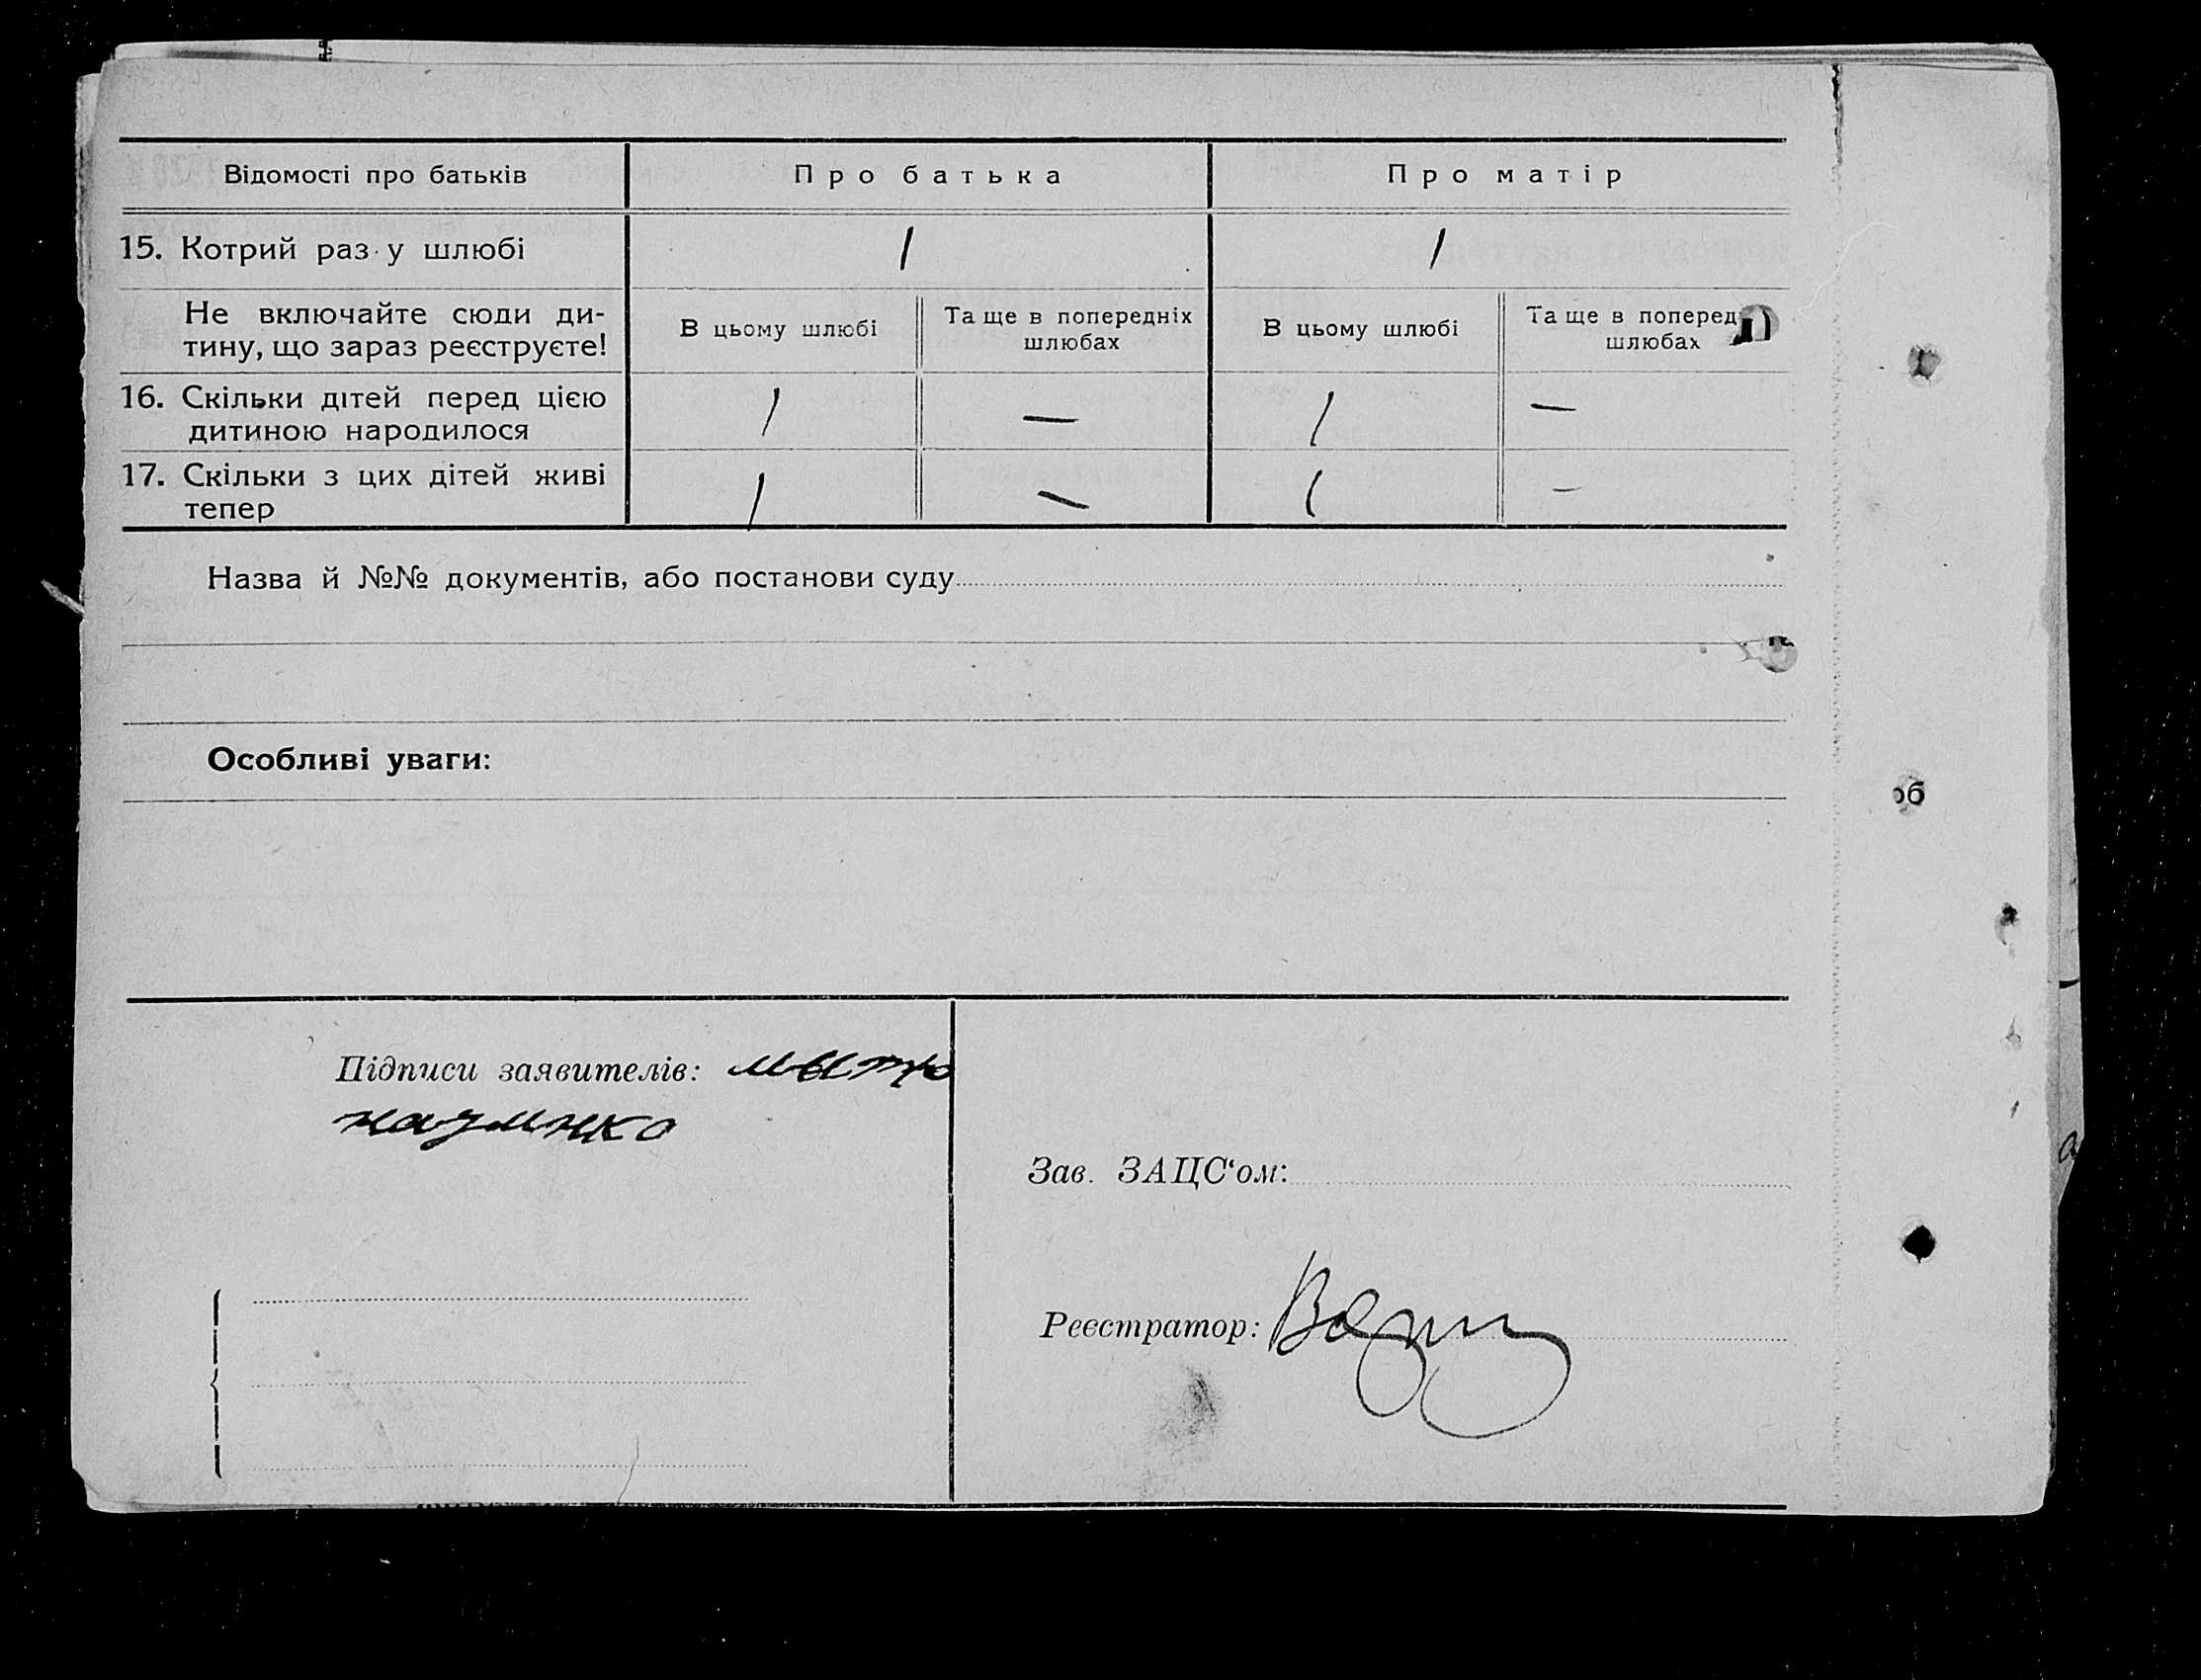 Відомості про батьків Про батька Про матір
15. Котрий раз у шлюбі 1 1
Не включайте сюди ди-
тину, що зараз реєструєте!
В цьому шлюбі
Та ще в попередніх
шлюбах
В цьому шлюбі
Та ще в поперед
шлюбах
16. Скільки дітей перед цією
дитиною народилося
1 — 1 —
17. Скільки з цих дітей живі
тепер
1 — 1 —
Назва й №№ документів, або постанови суду
Особливі уваги:
об
Підписи заявителів:
Зав. ЗАЦС‘ом:
Реєстратор: